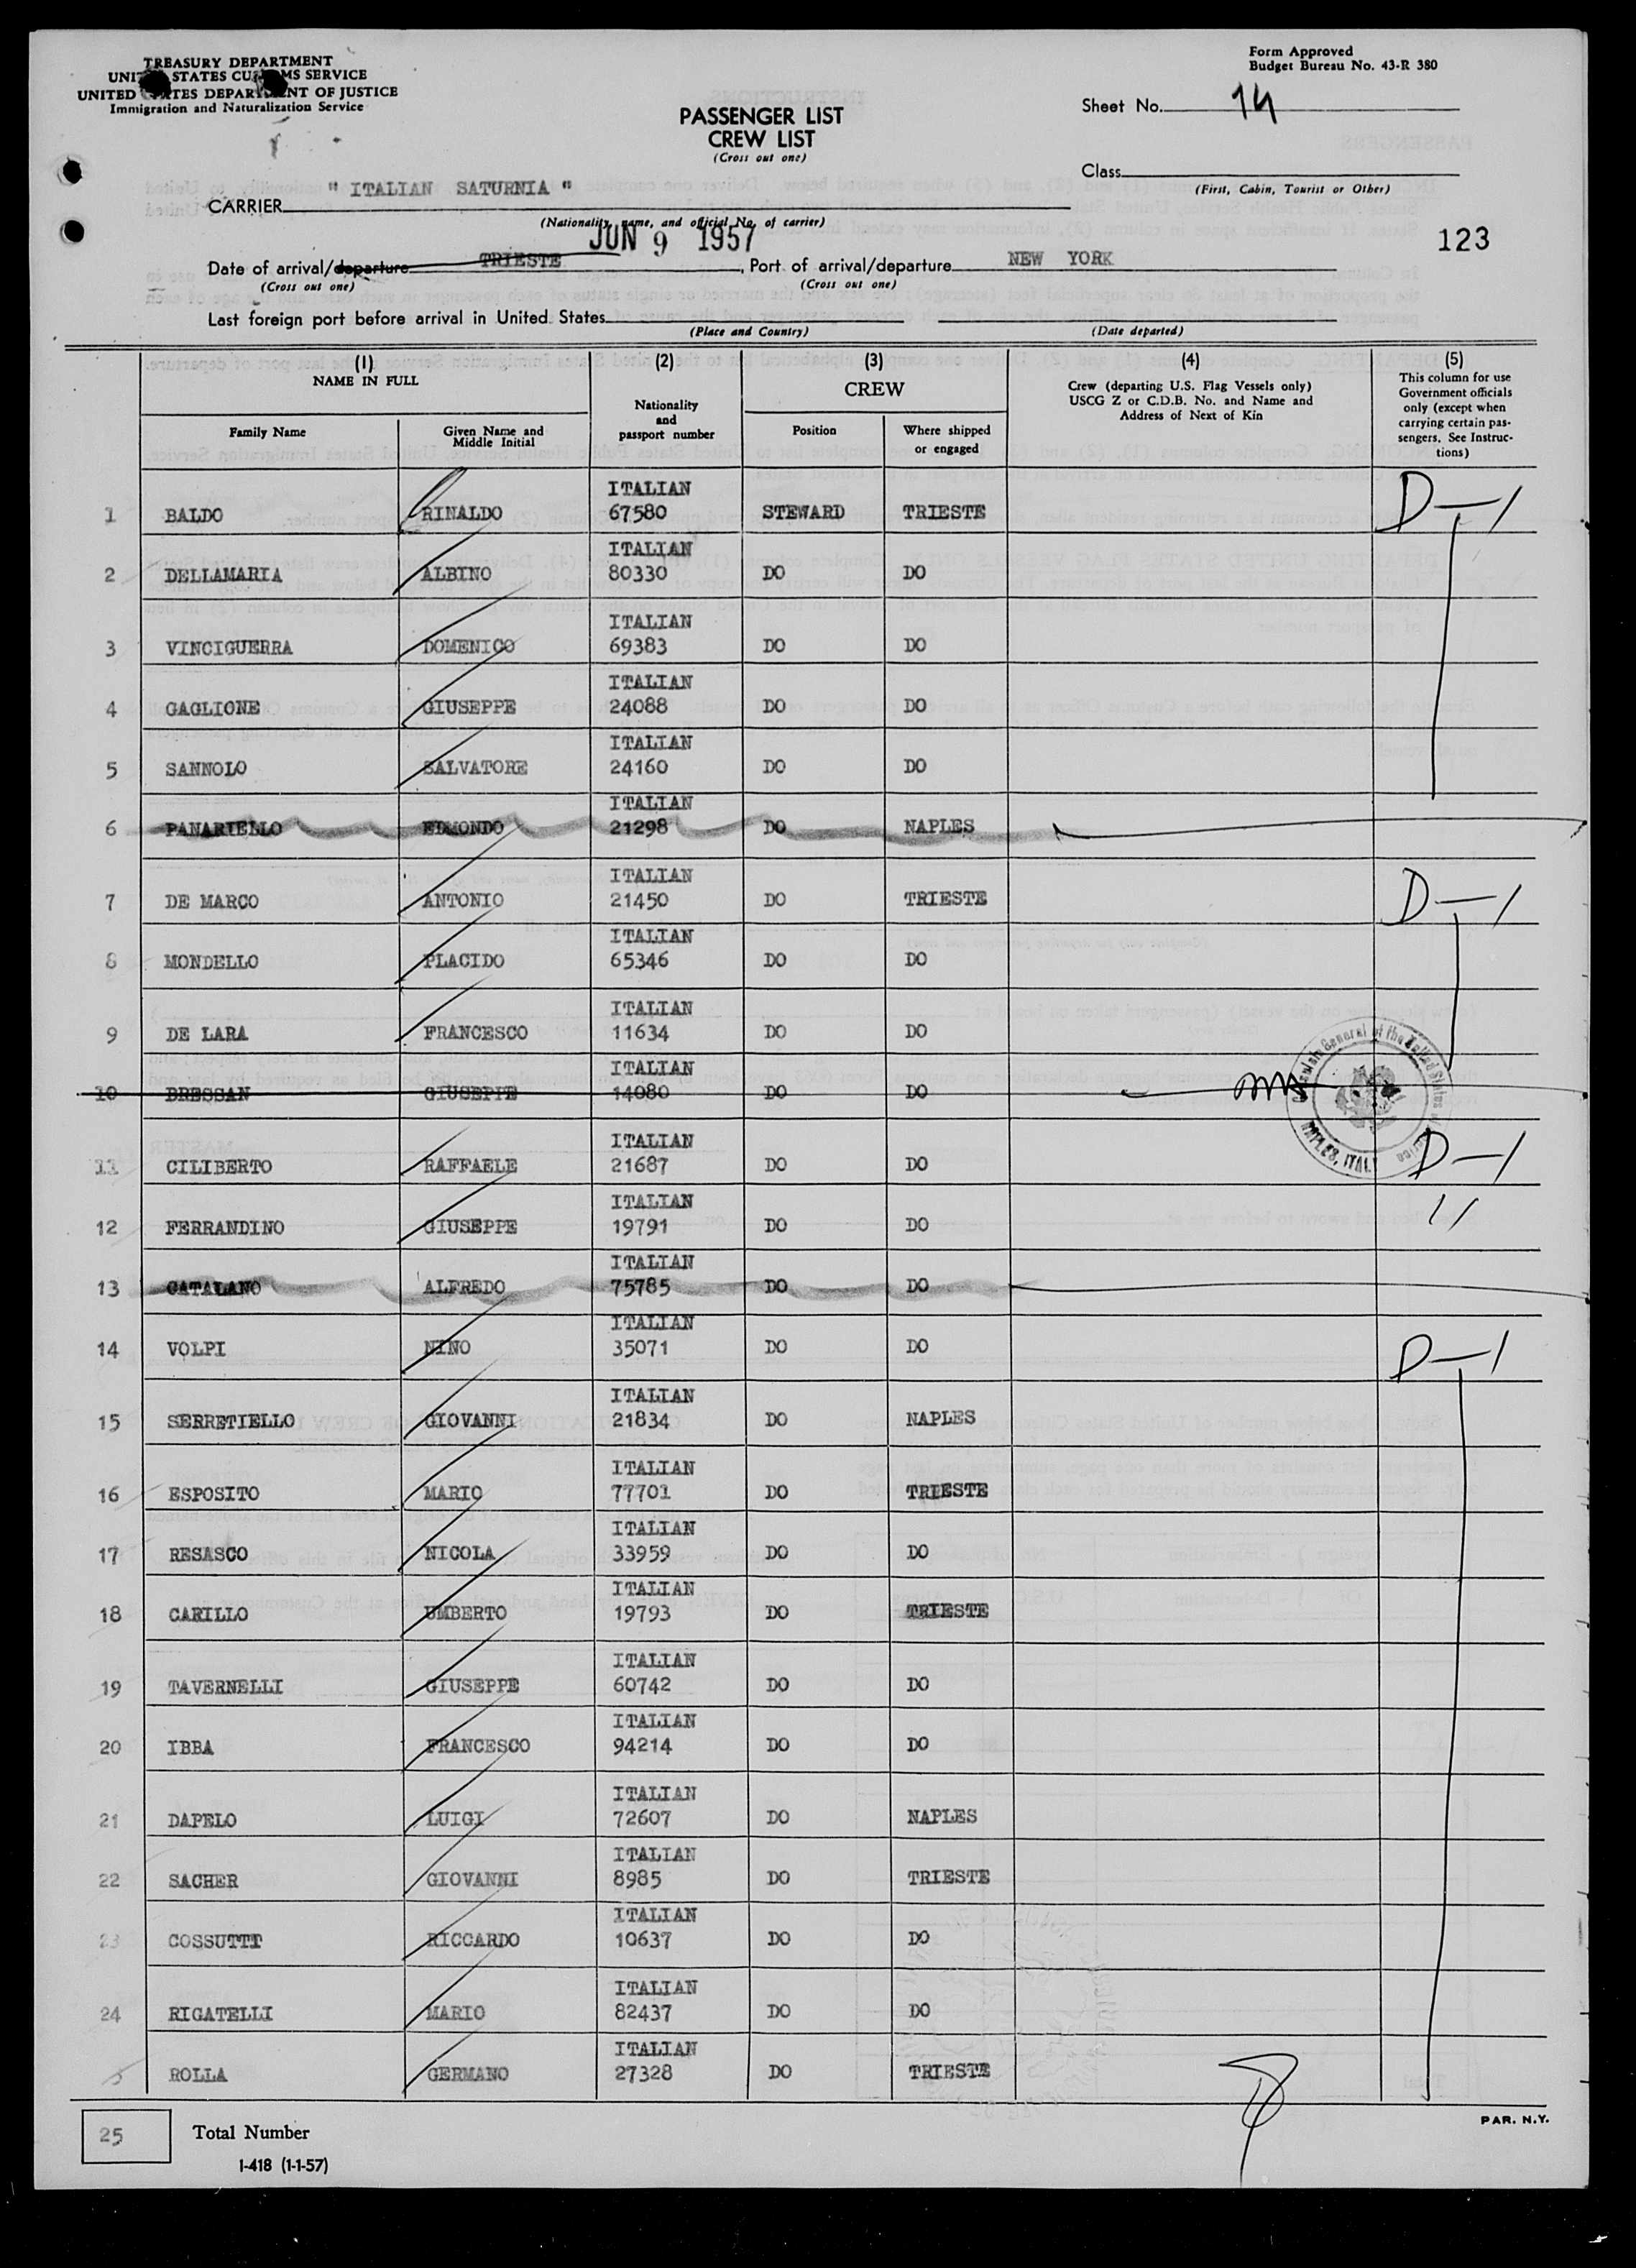 TREASURY DEPARTMENT
UNITED STATES CUSTOMS SERVICE
UNITED STATES DEPARTMENT OF JUSTICE
Immigration and Naturalization Service
Form Approved
Budget Bureau No. 43-R 380
PASSENGER LIST
CREW LIST
(Cross out one)
Sheet No. 14
Class
(First, Cabin, Tourist or Other)
CARRIER " ITALIAN SATURNIA "
(Nationality, name, and official No. of carrier)
JUN 9 1957
123
Date of arrival/departure TRIESTE, Port of arrival/departure NEW YORK
(Cross out one) (Cross out one)
Last foreign port before arrival in United States
(Place and Country) (Date departed)
(1) (2) (3) (4) (5)
NAME IN FULL
Family Name
Given Name and Middle Initial
Nationality and passport number
CREW
Position
Where shipped or engaged
Crew (departing U.S. Flag Vessels only)
USCG Z or C.D.B. No. and Name and
Address of Next of Kin
This column for use
Government officials
only (except when
carrying certain pas-
sengers. See Instruc-
tions)
1 BALDO RINALDO ITALIAN 67580 STEWARD TRIESTE D-1
2 DELLAMARIA ALBINO ITALIAN 80330 DO DO
3 VINCIGUERRA DOMENICO ITALIAN 69383 DO DO
4 GAGLIONE GIUSEPPE ITALIAN 24088 DO DO
5 SANNOLO SALVATORE ITALIAN 24160 DO DO
6 PANARIELLO EDMONDO ITALIAN 21298 DO NAPLES
7 DE MARCO ANTONIO ITALIAN 21450 DO TRIESTE D-1
8 MONDELLO PLACIDO ITALIAN 65346 DO DO
9 DE LARA FRANCESCO ITALIAN 11634 DO DO
10 BRESSAN GIUSEPPE ITALIAN 14080 DO DO
NAPLES, ITALY
11 CILIBERTO RAFFAELE ITALIAN 21687 DO DO D-1
12 FERRANDINO GIUSEPPE ITALIAN 19791 DO DO "
13 CATALANO ALFREDO ITALIAN 75785 DO DO
14 VOLPI NINO ITALIAN 35071 DO DO D-1
15 SERRETIELLO GIOVANNI ITALIAN 21834 DO NAPLES
16 ESPOSITO MARIO ITALIAN 77701 DO TRIESTE
17 RESASCO NICOLA ITALIAN 33959 DO DO
18 CARILLO UMBERTO ITALIAN 19793 DO TRIESTE
19 TAVERNELLI GIUSEPPE ITALIAN 60742 DO DO
20 IBBA FRANCESCO ITALIAN 94214 DO DO
21 DAPELO LUIGI ITALIAN 72607 DO NAPLES
22 SACHER GIOVANNI ITALIAN 8985 DO TRIESTE
23 COSSUTTI RICCARDO ITALIAN 10637 DO DO
24 RIGATELLI MARIO ITALIAN 82437 DO DO
ROLLA GERMANO ITALIAN 27328 DO TRIESTE
25 Total Number
I-418 (1-1-57)
PAR. N.Y.